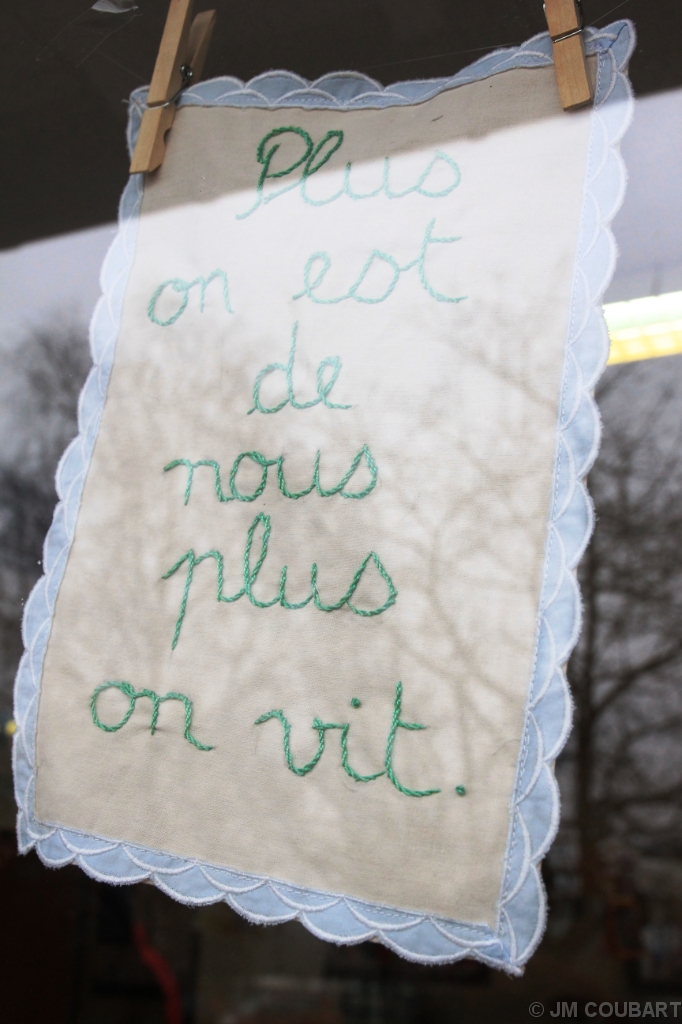 Plus
on est
de
nous
plus
on vit.
© JM COUBART